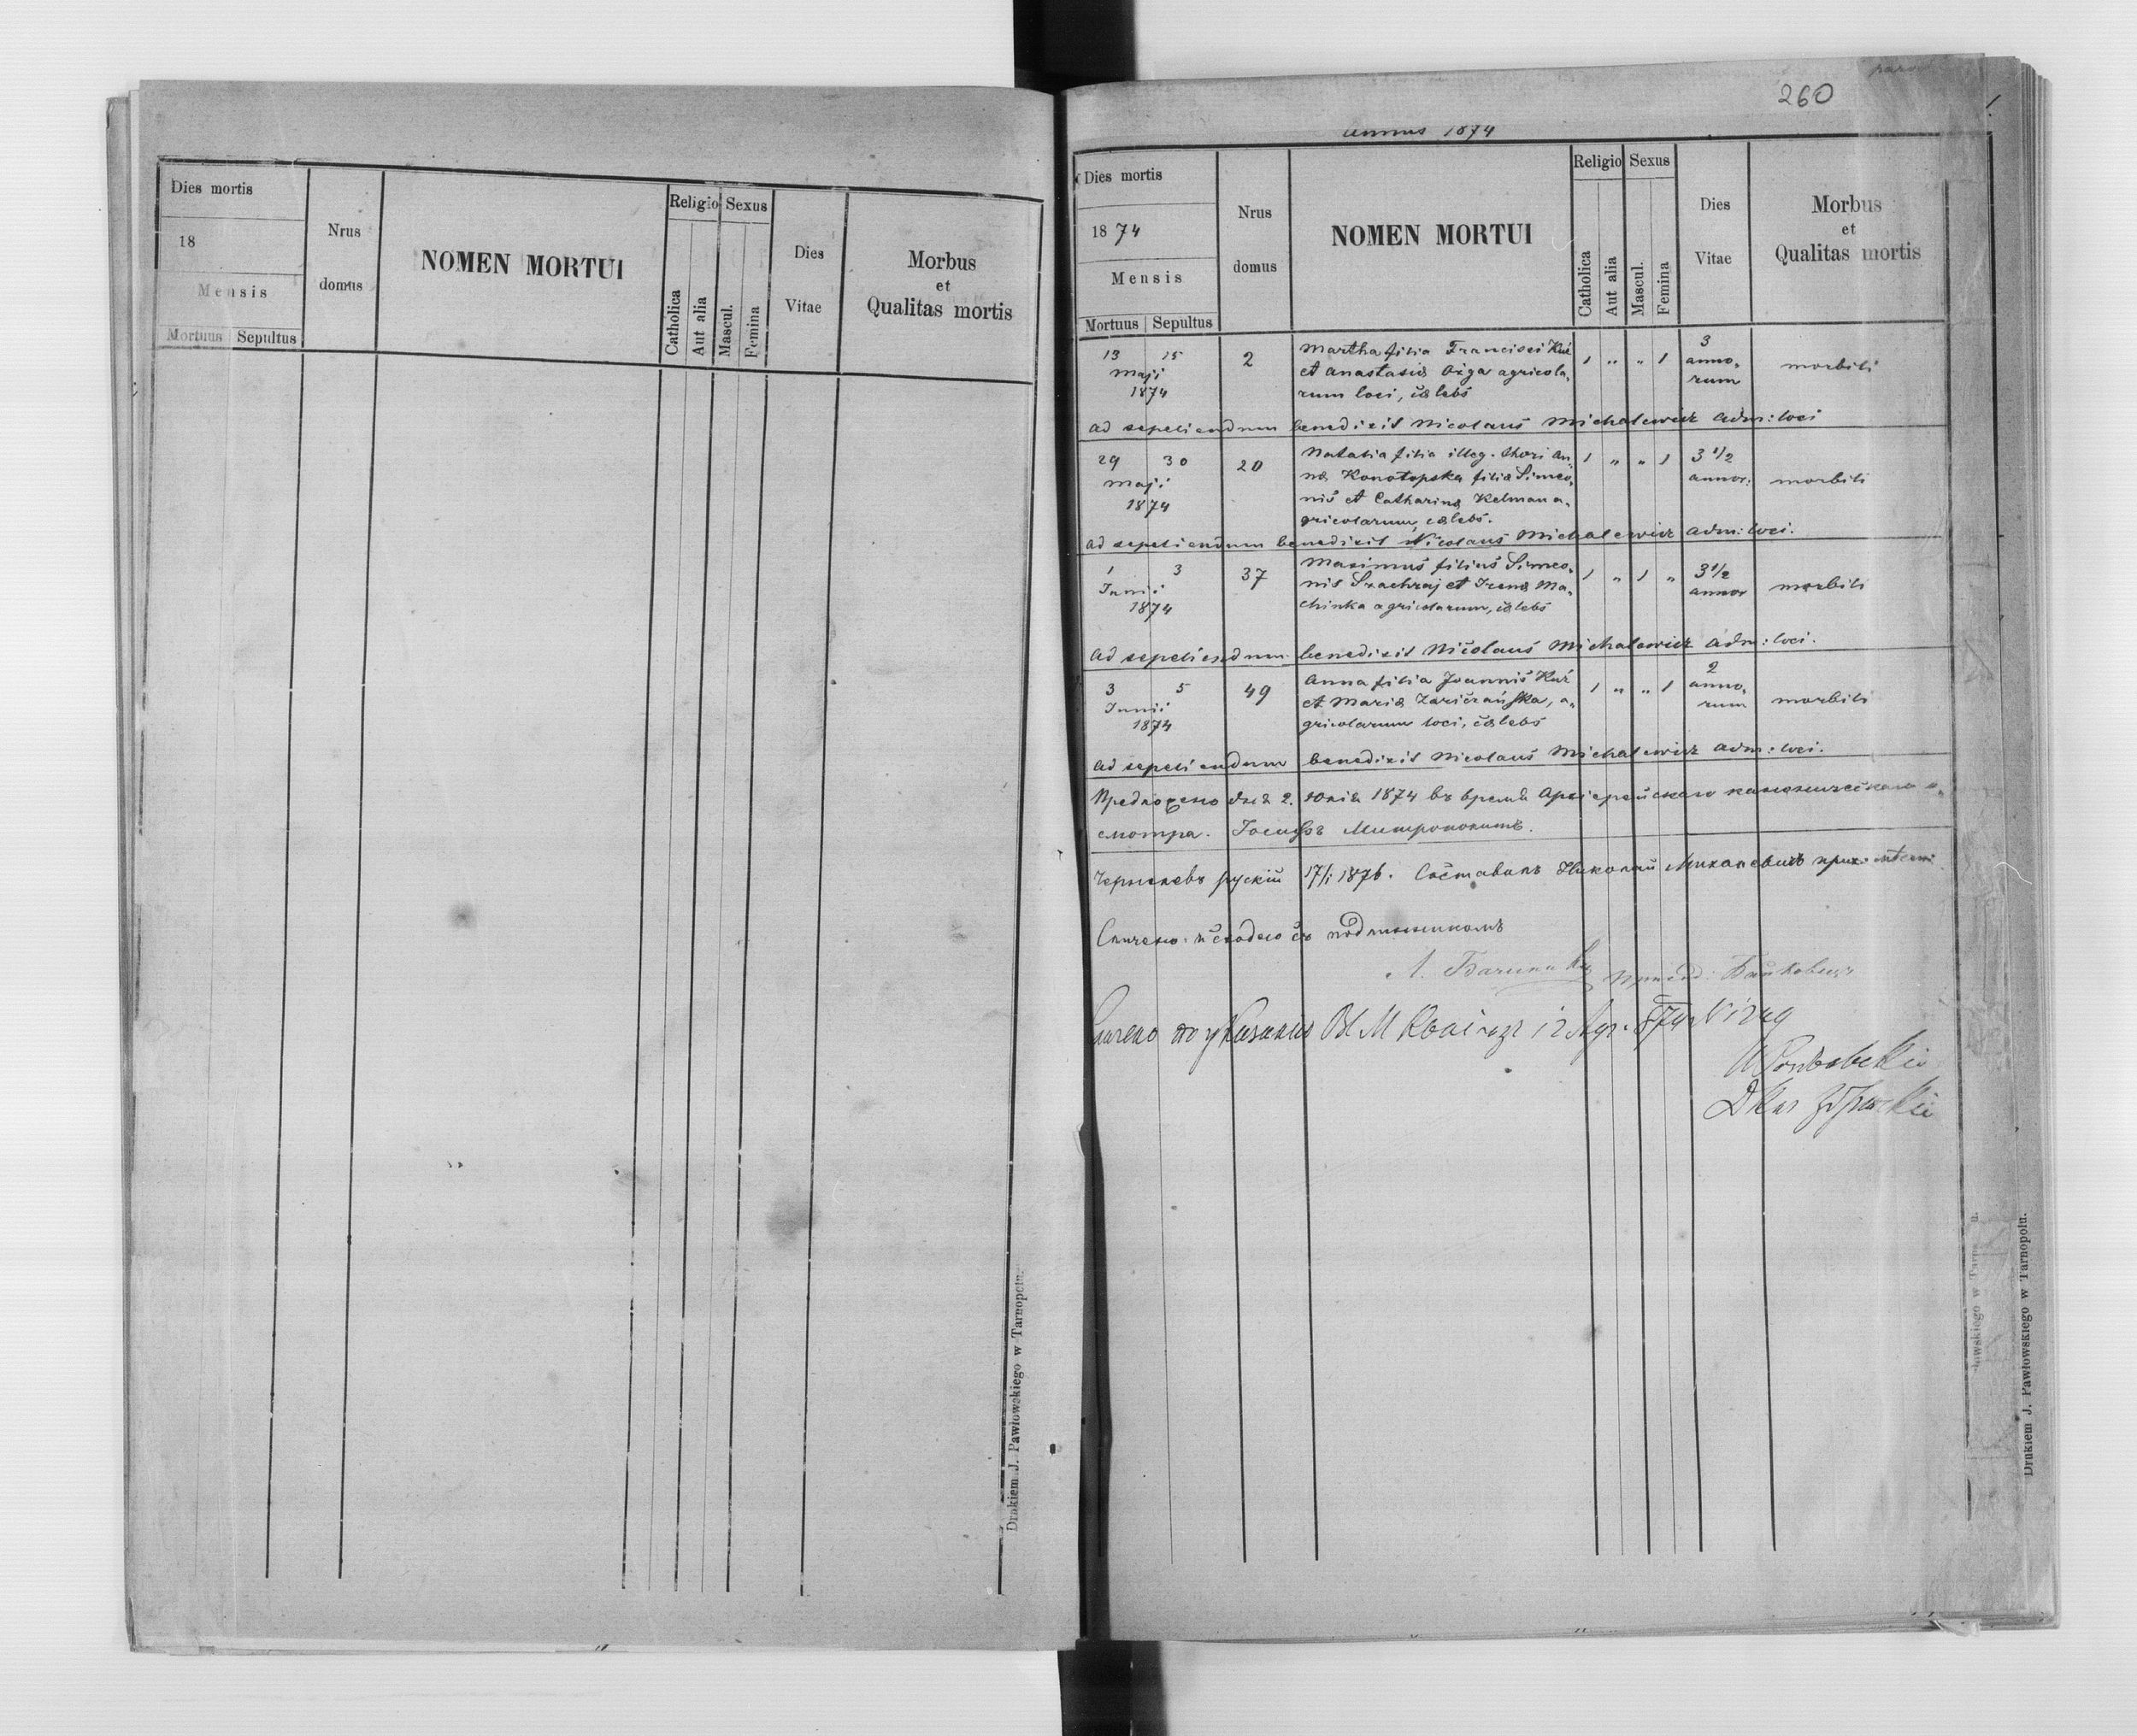 Dies mortis
18
Mensis
Mortuus Sepultus
Nrus
domus
NOMEN MORTUI
Religio Sexus
Catholica
Aut alia
Mascul.
Femina
Dies
Vitae
Morbus
et
Qualitas mortis
Drukiem J. Pawłowskiego w Tarnopolu.
260
Annus 1874
Dies mortis
1874
Mensis
Mortuus Sepultus
Nrus
domus
NOMEN MORTUI
Religio Sexus
Catholica
Aut alia
Mascul.
Femina
Dies
Vitae
Morbus
et
Qualitas mortis
13 15 2 Martha filia Francisci Kuś 1 " " 1 3
Maji et Anastasiæ agricola, anno, morbili
1874 rum loci, cælebs rum
ad sepeliendum benedixit Nicolaus Michalewicz adm: loci
29 30 20 Natalia filia illeg. thori An, 1 " " 1 3 1/2
Maji næ Konotopska filiæ Simeo, annor: morbili
1874 nis et Catharinæ Kelman a,
gricolarum, cælebs.
ad sepeliendum benedixit Nicolaus Michalewicz adm: loci.
1 3 37 Maximus filius Simeo, 1 " 1 " 3 1/2
Junii nis Szachraj et Irenæ Ma, annor morbili
1874 chinka agricolarum, cælebs
ad sepeliendum benedixit Nicolaus Michalewicz adm: loci.
3 5 49 Anna filia Joannis Kuś 1 " " 1 2
Junii et Mariæ a, anno, morbili
1874 gricolarum loci, cælebs rum
ad sepeliendum benedixit Nicolaus Michalewicz adm: loci.
дня 2. юнія 1874 въ время Архіерейского канонического о,
смотра. Іосифъ Митрополитъ.
рускій 17/1 1876. Составилъ Николай Михалевичъ
Сличено
Drukiem J. Pawłowskiego w Tarnopolu.